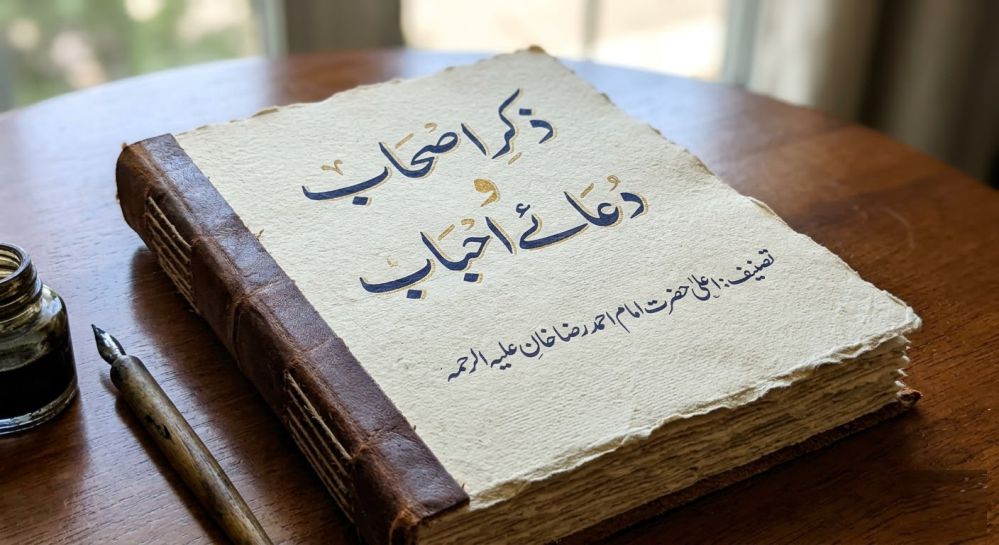 ذکرِ اصحاب
و
دُعائے احبَاب
تصنیف: اعلیٰ حضرت امام احمد رضا خان علیہ الرحمہ